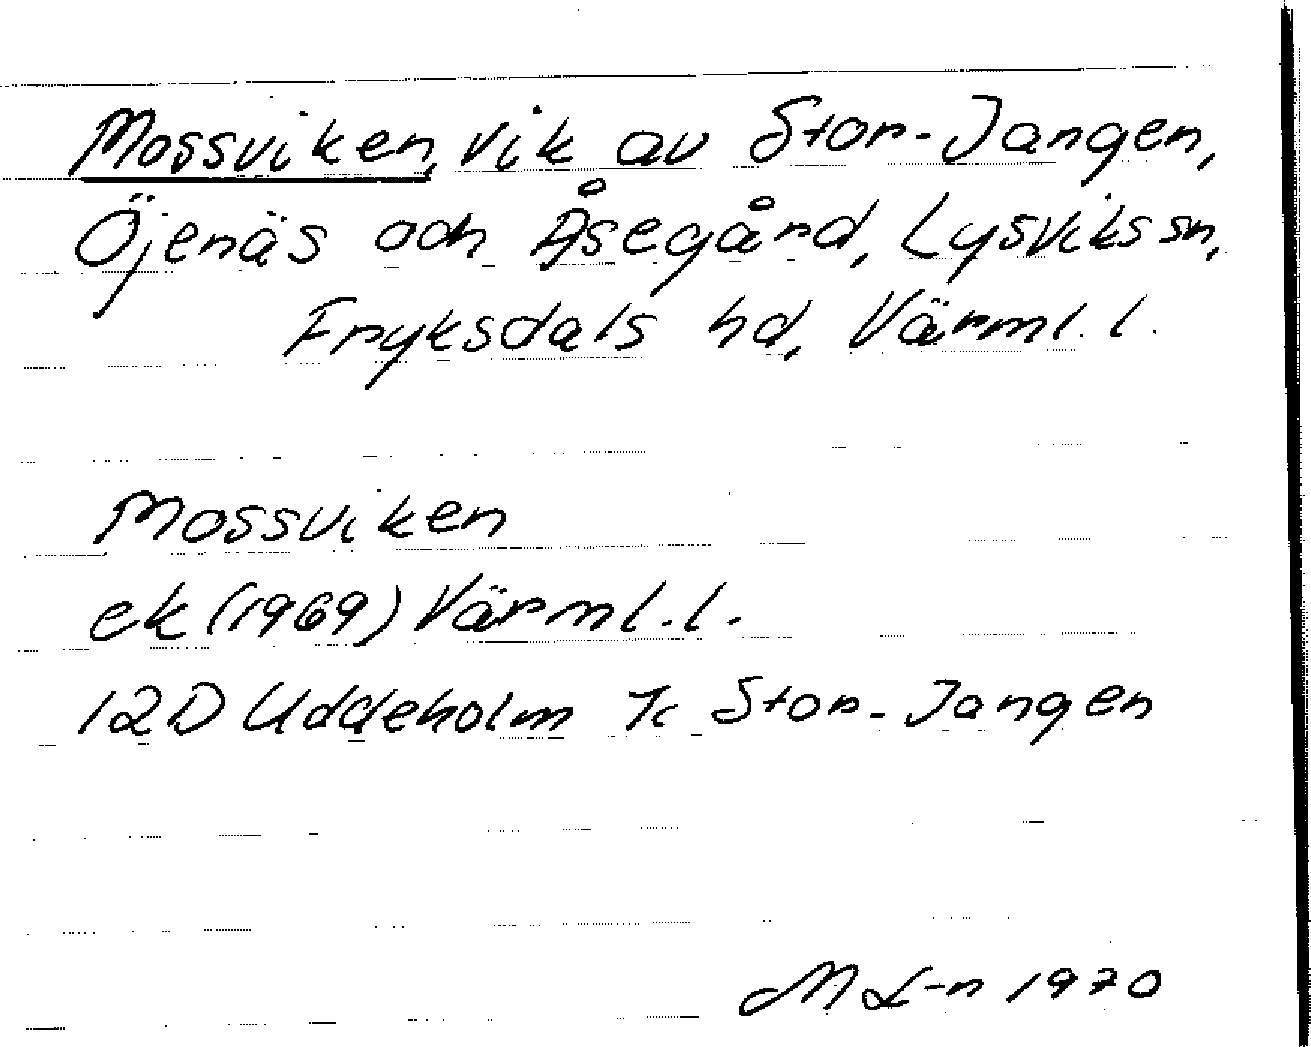 Mossviken, vik av Stor-Jangen,
Öjenäs och Åsegård, Lysviks sn,
Fryksdals hd, Värml. l.
Mossviken
ek (1969) Värml. l.
12D Uddeholm 7c Stor-Jangen
M L-n 1970